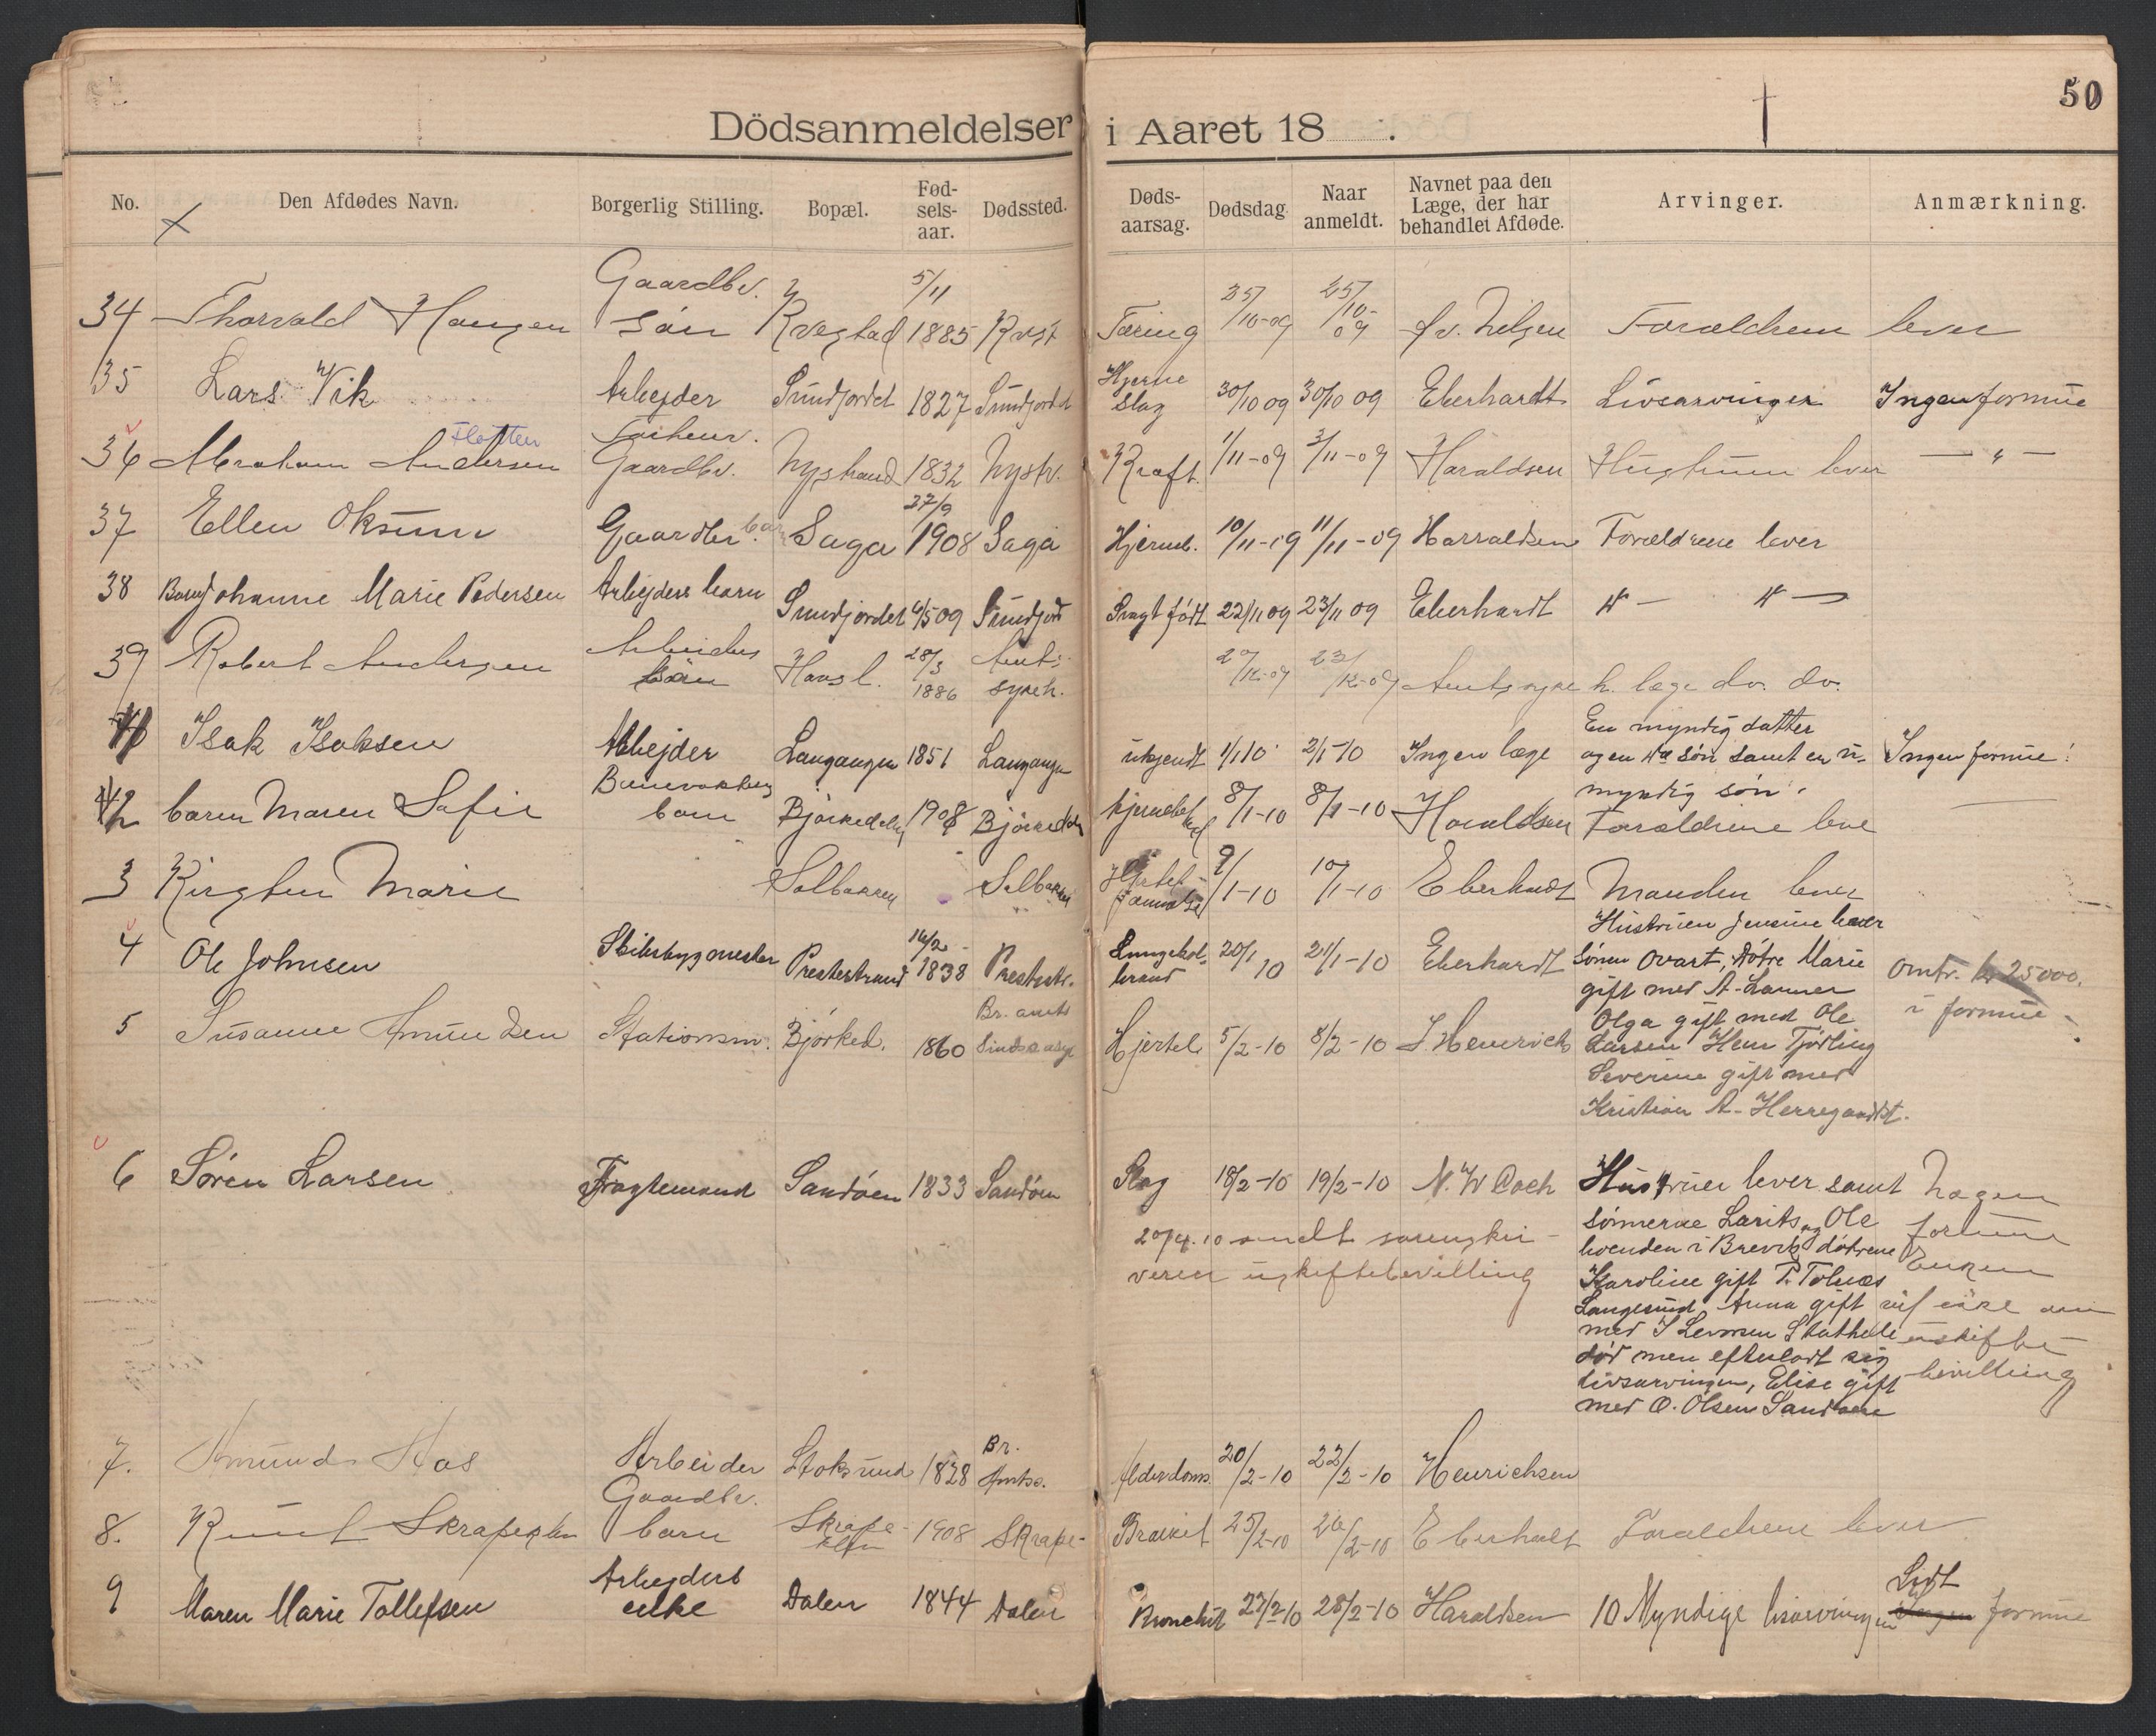 50
Dödsanmeldelser i Aaret 18 .
No. Den Afdødes Navn. Borgerlig Stilling. Bopæl. Fød- sels- aar. Dødssted. Døds- aarsag. Dødsdag. Naar anmeldt. Navnet paa den Læge, der har behandlet Afdøde. Arvinger. Anmærkning.
34 Thorvald Hansen Gaardbr. sön 5/11 1885 Tæring 25/10-09 25/10-09 Forældrene lever
35 Lars Vik Arbejder Sundjordet 1827 Sundjordet Hjerne slag 30/10 09 30/10 09 Eberhardt Livsarvinger Ingen formue
36 Abraham Andersen Flotten Gaardbr. Nystrand 1832 Nystr. Kræft. 1/11-09 3/11-09 Haraldsen Hustruen lever — " —
37 Ellen Oksum Gaardbr. barn Saga 27/9 1908 Saga Hjerneb. 10/11-09 11/11-09 Harraldsen Forældrene lever
38 Barn Johanne Marie Pedersen Arbejders barn Sundjordet 6/5 09 Sundjord Svagt født 22/11 09 23/11 09 Eberhardt " — " —
39 Robert Andersen Arbeiders sön 28/3 1886 Amts sykeh. 23/12-09 Amtssykeh. læge do. do.
Isak Isaksen Arbejder Langangen 1851 Langangen ukjendt 1/1 10 2/1-10 Ingen læge En myndig datter og en do søn samt en u- myndig søn. Ingen formue!
42 barn Maren Sofie Banevokters barn Björkedalen 1908 Björkedal 8/1-10 8/1-10 Haraldsen Forældrene leve
3 Kirsten Marie Solbakken Solbakken 9/1-10 10/1-10 Eberhardt Manden lever
4 Ole Johnsen Skibsbygmester Prestestrand 16/2 - 1838 Prestestr. 20/1 10 21/1-10 Eberhardt Hustruen Jensine lever
Sønen Ovart, Døtre Marie
gift med A. Larsen
Olga gift med Ole
Larsen Hem Tjølling
Severine gift med
Kristian A. Herregaardst.
Omtr. kr 25000.
i formue.
5 Susanne Amundsen Stationsm. Björked. 1860 Br. amts Sindsasyl Hjertel. 5/2-10 8/2-10 J. Henrichs
6 Søren Larsen Fragtemand Sandøen 1833 Sandøen Slag 18/2-10 19/2-10 N. W Coch Hustruen lever samt
sønnerne Larits og Ole
boende i Brevik, døtrene
Karoline gift P. Tolnæs
Langesund, Anna gift
med J Levorsen Stathelle
død men efterladt sig
livsarvinger, Elise gift
med O. Olsen Sandøen
Nogen
formue
Enken
vil søke om
uskifte
bevilling
20/4.10 sendt sorenskri-
veren uskiftebevilling
7. Amund Aas Arbeider Stoksund 1828 Br. Amtss. Alderdoms. 20/2-10 22/2-10 Henrichsen
8. Knut Skrapeklev Gaardbr. barn Skrape- klev 1908 Skrape- 25/2-10 26/2-10 Forældrene lever
9 Maren Marie Tollefsen Arbejders enke Dalen 1844 Dalen Bronchit 27/2-10 28/2-10 Haraldsen 10 Myndige livsarvinger Lidt formue